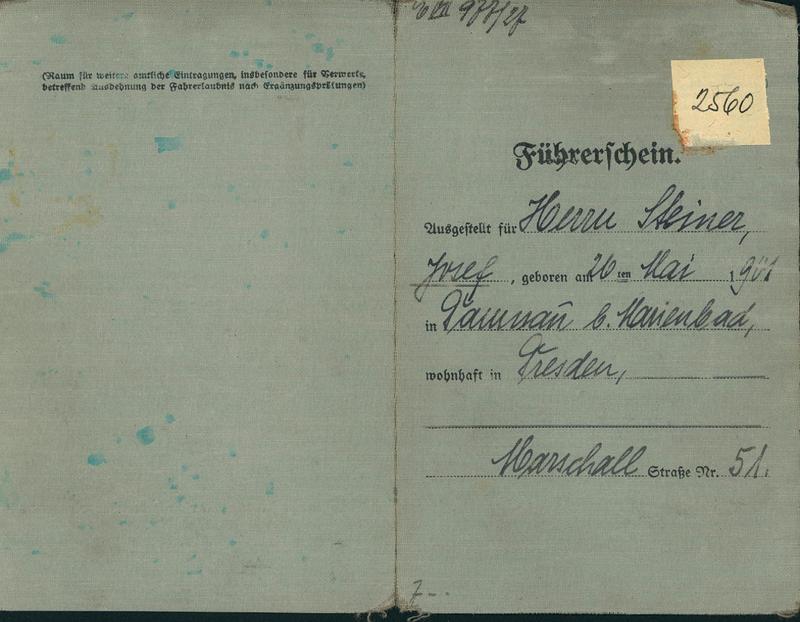 (Raum für weitere amtliche Eintragungen, insbesondere für Vermerke,
betreffend Ausdehnung der Fahrerlaubnis nach Ergänzungsprüfungen)
977/27
2560
Führerschein.
Ausgestellt für Herrn Steiner,
Josef, geboren am 26 ten Mai 1901
in b. Marienbad,
wohnhaft in Dresden,
Marschall Straße Nr. 51.
7--